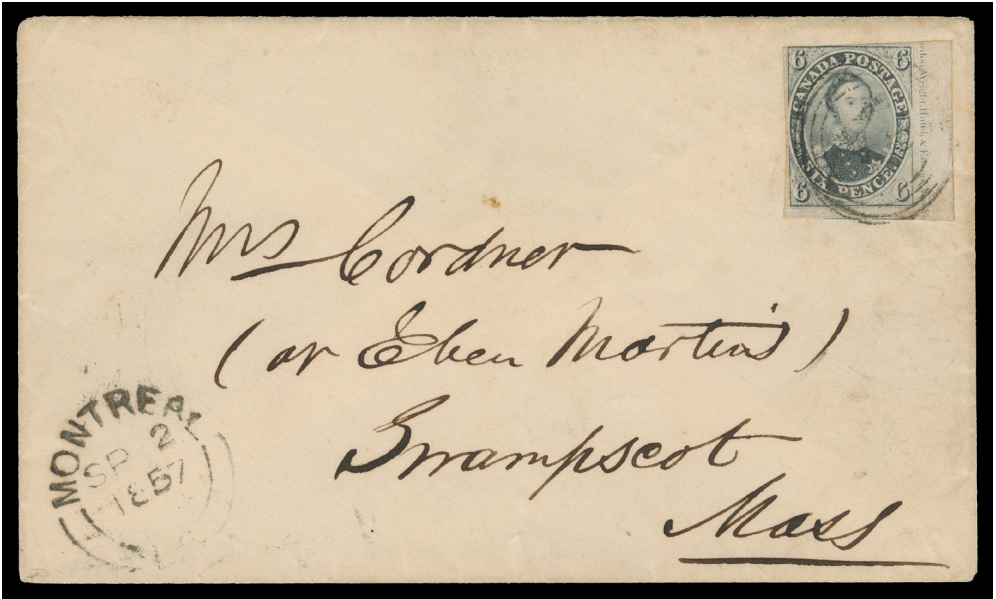 6 CANADA POSTAGE 6
6 SIX PENCE. 6
Mrs Cordner
(or Eben Martin's)
Swampscot
Mass
MONTREAL
SP 2
1857